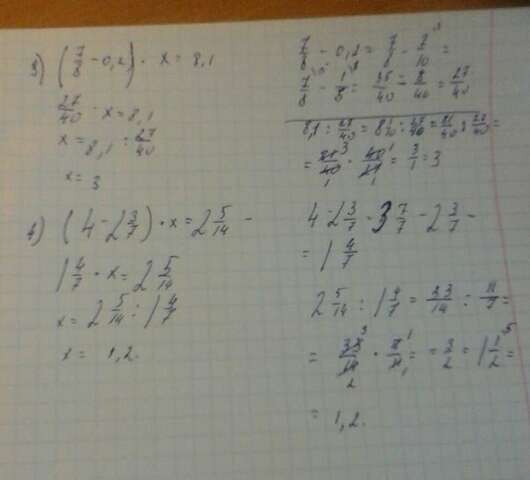 3) (7/8 - 0,2) · x = 8,1
27/40 · x = 8,1
x = 8,1 : 27/40
x = 3
7/8 - 0,2 = 7/8 - 2/10 =
7/8 - 1/5 = 35/40 - 8/40 = 27/40
8,1 : 27/40 = 8 1/10 : 27/40 = 81/10 : 27/40 =
= 81/10 · 40/27 = 3/1 = 3
4) (4 - 2 3/7) · x = 2 5/14
1 4/7 · x = 2 5/14
x = 2 5/14 : 1 4/7
x = 1,2.
4 - 2 3/7 = 3 7/7 - 2 3/7 =
= 1 4/7
2 5/14 : 1 4/7 = 33/14 : 11/7 =
= 33/14 · 7/11 = 3/2 = 1 1/2
= 1,2.